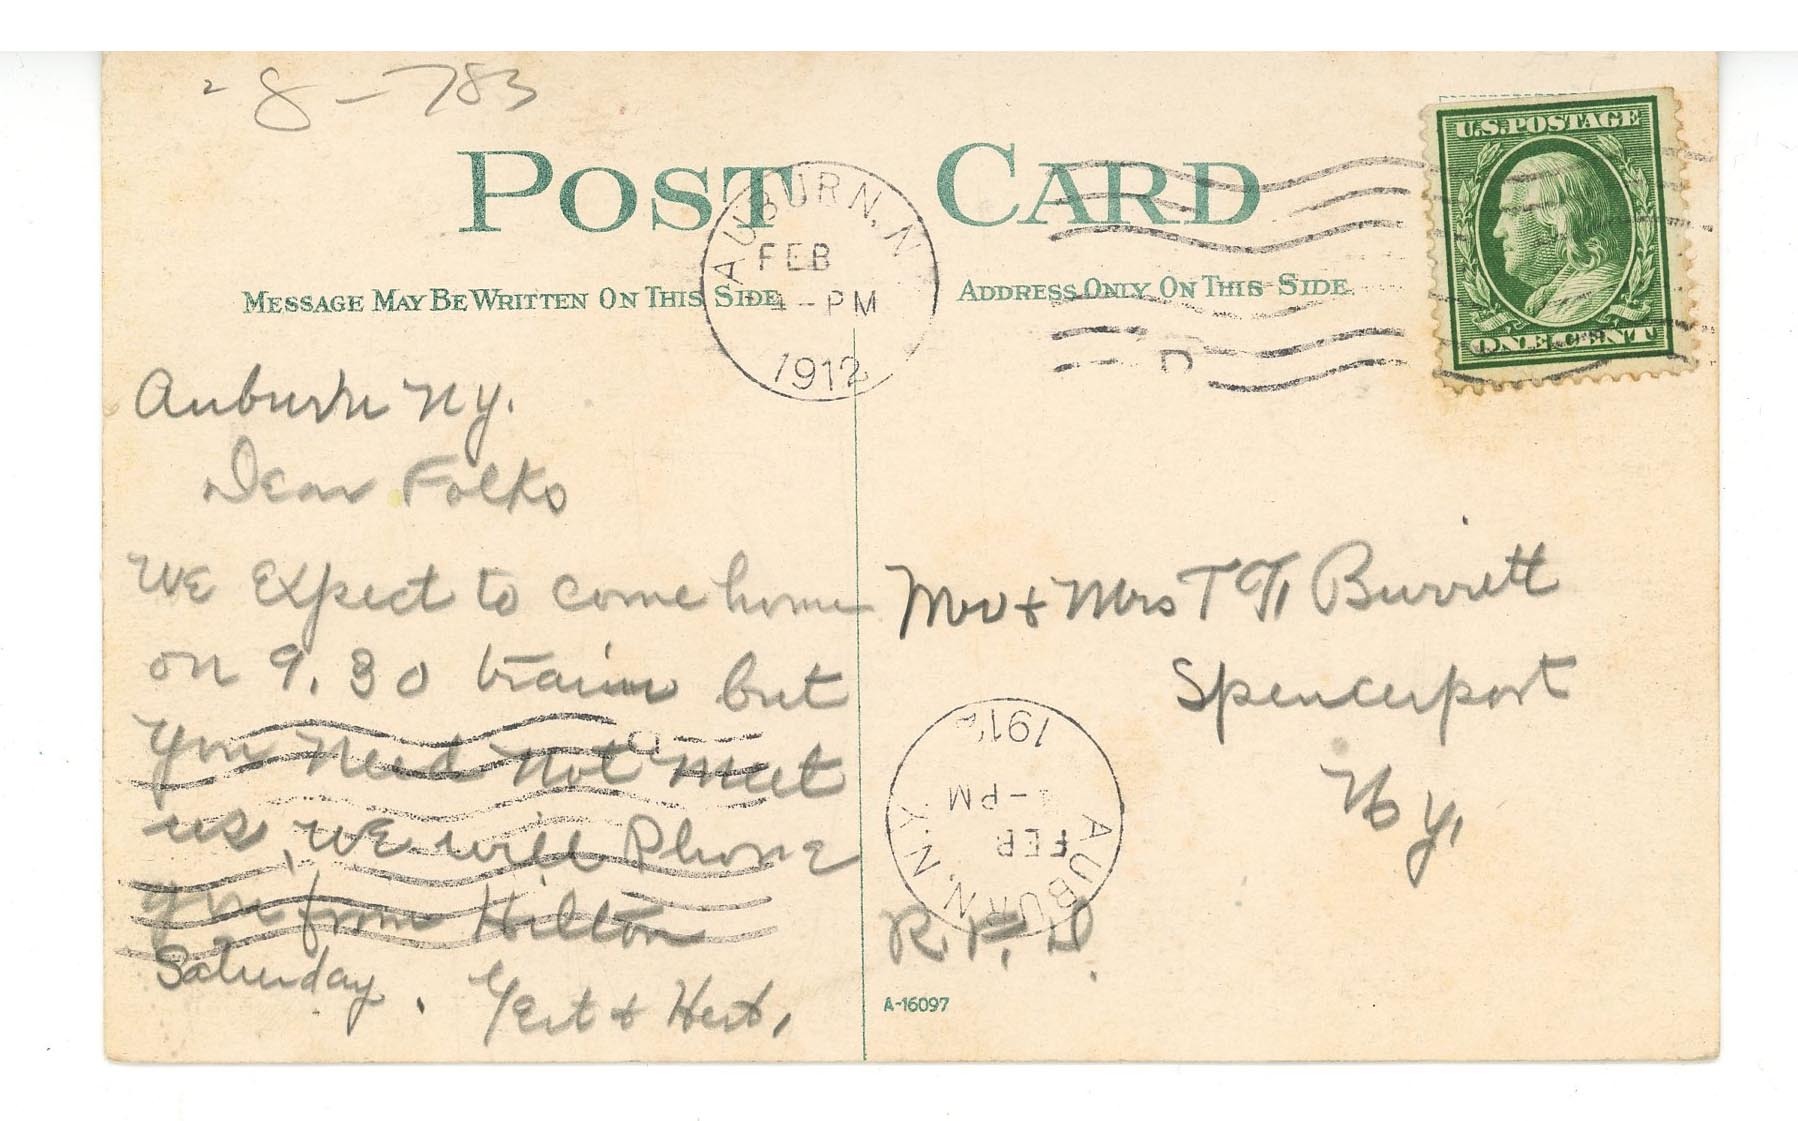 8-783
POST CARD
MESSAGE MAY BE WRITTEN ON THIS SIDE
ADDRESS ONLY ON THIS SIDE
U.S. POSTAGE
ONE CENT
AUBURN, N
FEB
4-PM
1912
Auburn Ny.
Dear Folks
We Expect to come home
on 9.30 train but
you need not meet
us, we will Phone
you from Hilton
Saturday. Gert + Herb,
Mr + Mrs T Burritt
Spencerport
Ny,
R.F.D.
AUBURN, N.Y.
FEB
4-PM
1912
A-16097